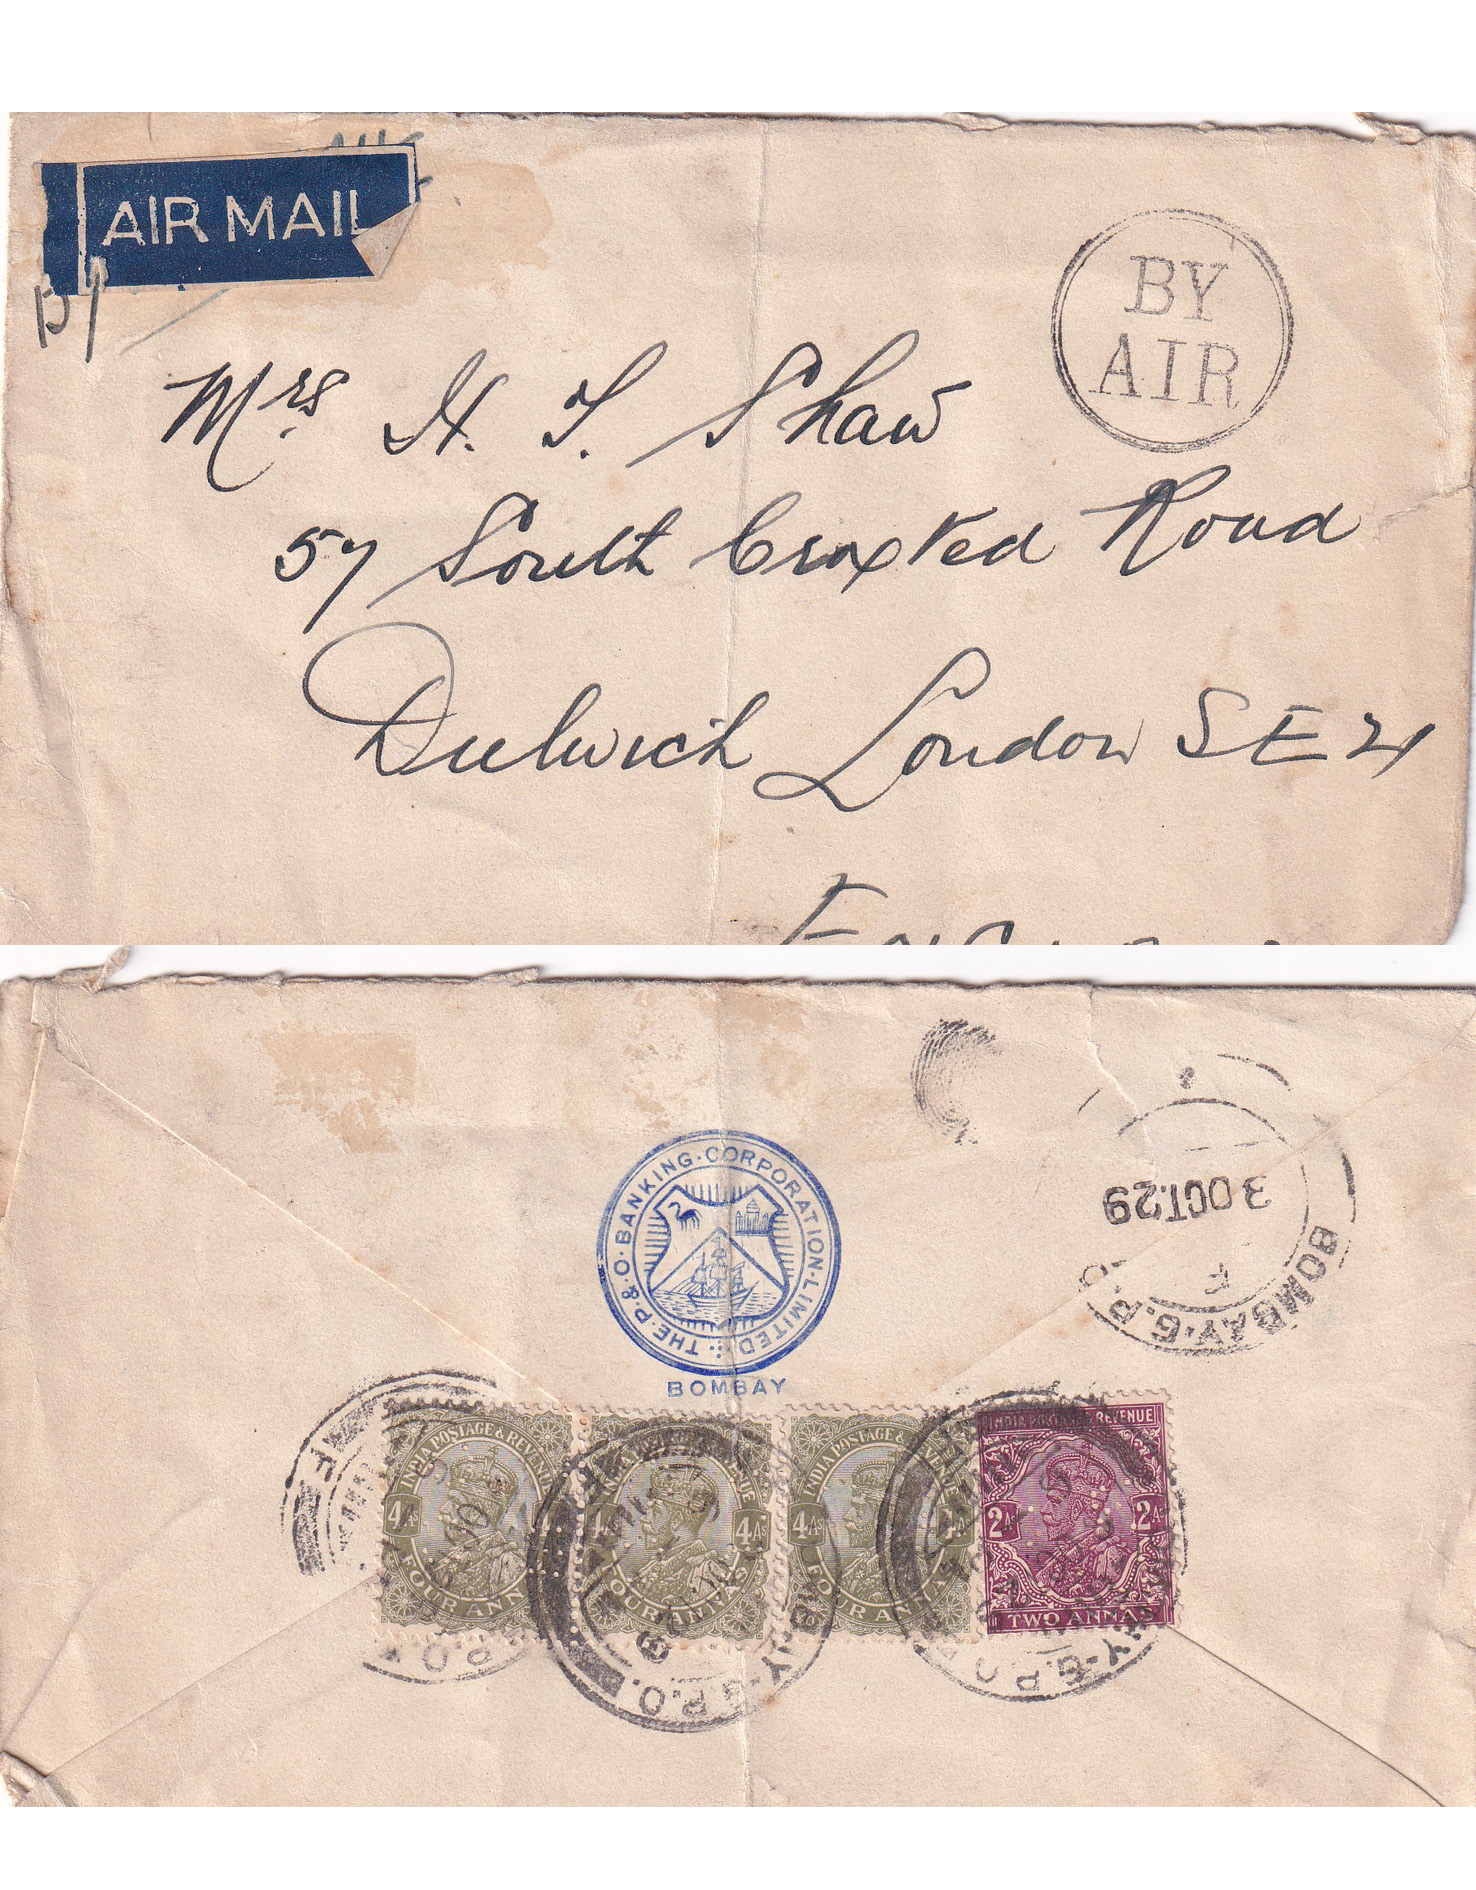 AIR MAIL
By
BY
AIR
Mrs. H. T. Shaw
57 South Croxted Road
Dulwich London SE 21
THE · P. & O. BANKING · CORPORATION · LIMITED
BOMBAY
BOMBAY. G.P.O.
F
3 OCT. 29
INDIA POSTAGE & REVENUE
4 As
FOUR ANN
4 As
4 As
OUR ANNAS
INDIA POSTAGE &
4 As
4 As
FOUR ANNA
INDIA POSTAGE & REVENUE
2 As
2 As
TWO ANNAS
P.O.
BAY. G.P.O.
Y. G.P.O.